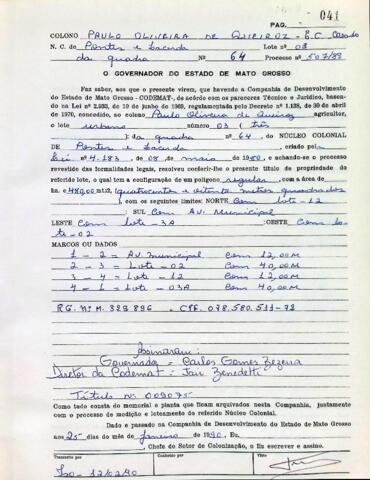 PAG. 041
COLONO PAULO OLIVEIRA DE QUEIROZ - E.C. Casado
N. C. de Pontes e Lacerda Lote nº 03
da quadra Nº 64 Processo nº 507/88
O GOVERNADOR DO ESTADO DE MATO GROSSO
Faz saber, aos que o presente virem, que havendo a Companhia de Desenvolvimento
do Estado de Mato Grosso - CODEMAT-, de acórdo com os pareceres Técnico e Jurídico, basean-
do na Lei n° 2.933, de 10 de junho de 1969, regulamentada pelo Decreto n° 1.138, de 30 de abril
de 1970, concedido ao colono Paulo Oliveira de Queiroz agricultor,
o lote urbano número 03 (três
) da quadra nº 64. do NÚCLEO COLONIAL
DE Pontes e Lacerda, criado pela
Lei nº 4.183. de 08 de maio de 1980, e achando-se o processo
revestido das formalidades legais, resolveu conferir-lhe o presente título de propriedade do
referido lote, o qual tem a configuração de um polígono regular com a área de
480,00 mt2 (quatrocentos e oitenta metros quadrados
com os seguintes limites: NORTE Com lote - 12
: SUL Com Av. Municipal
LESTE Com lote - 3A :OESTE Com lo-
te - 02
MARCOS OU DADOS
1 - 2 = Av. Municipal Com 12,00M
2 - 3 = Lote - 02 Com 40,00M
3 - 4 = Lote - 12 Com 12,00M
4 - 1 = Lote - 03A Com 40,00M
RG. Nº M. 329 896 - CPF. 078.580.511-72
Assinaram:
Governador = Carlos Gomes Bezerra
Diretor da Codemat = Jair Benedetti
Título Nº 009075
Como tudo consta do memorial e planta que ficam arquivados nesta Companhia, juntamente
com o processo de medição e loteamento do referido Núcleo Colonial.
Dado e passado na Companhia de Desenvolvimento do Estado de Mato Grosso
aos 25 dias do mês de janeiro de 1990. Eu,
, Chefe do Setor de Colonização, o fiz escrever e assino.
Transcrito por
Conferido por
12/02/90